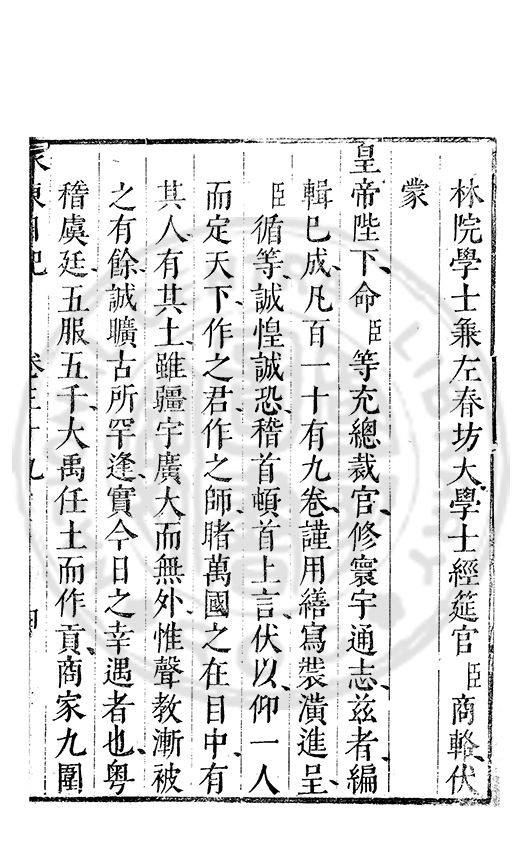 林院學士兼左春坊大學士經筵官臣商輅伏
蒙
皇帝陛下命臣等充總裁官修寰宇通志兹者編
輯已成凡百一十有九卷謹用繕寫裝潢進呈
臣循等誠惶誠恐稽首頓首上言伏以仰一人
而定天下作之君作之師睹萬國之在目中有
其人有其土雖疆宇廣大而無外惟聲教漸被
之有餘誠曠古所罕逢實今日之幸遇者也粤
稽虞廷五服五千大禹任土而作貢商家九圍
卷三十九